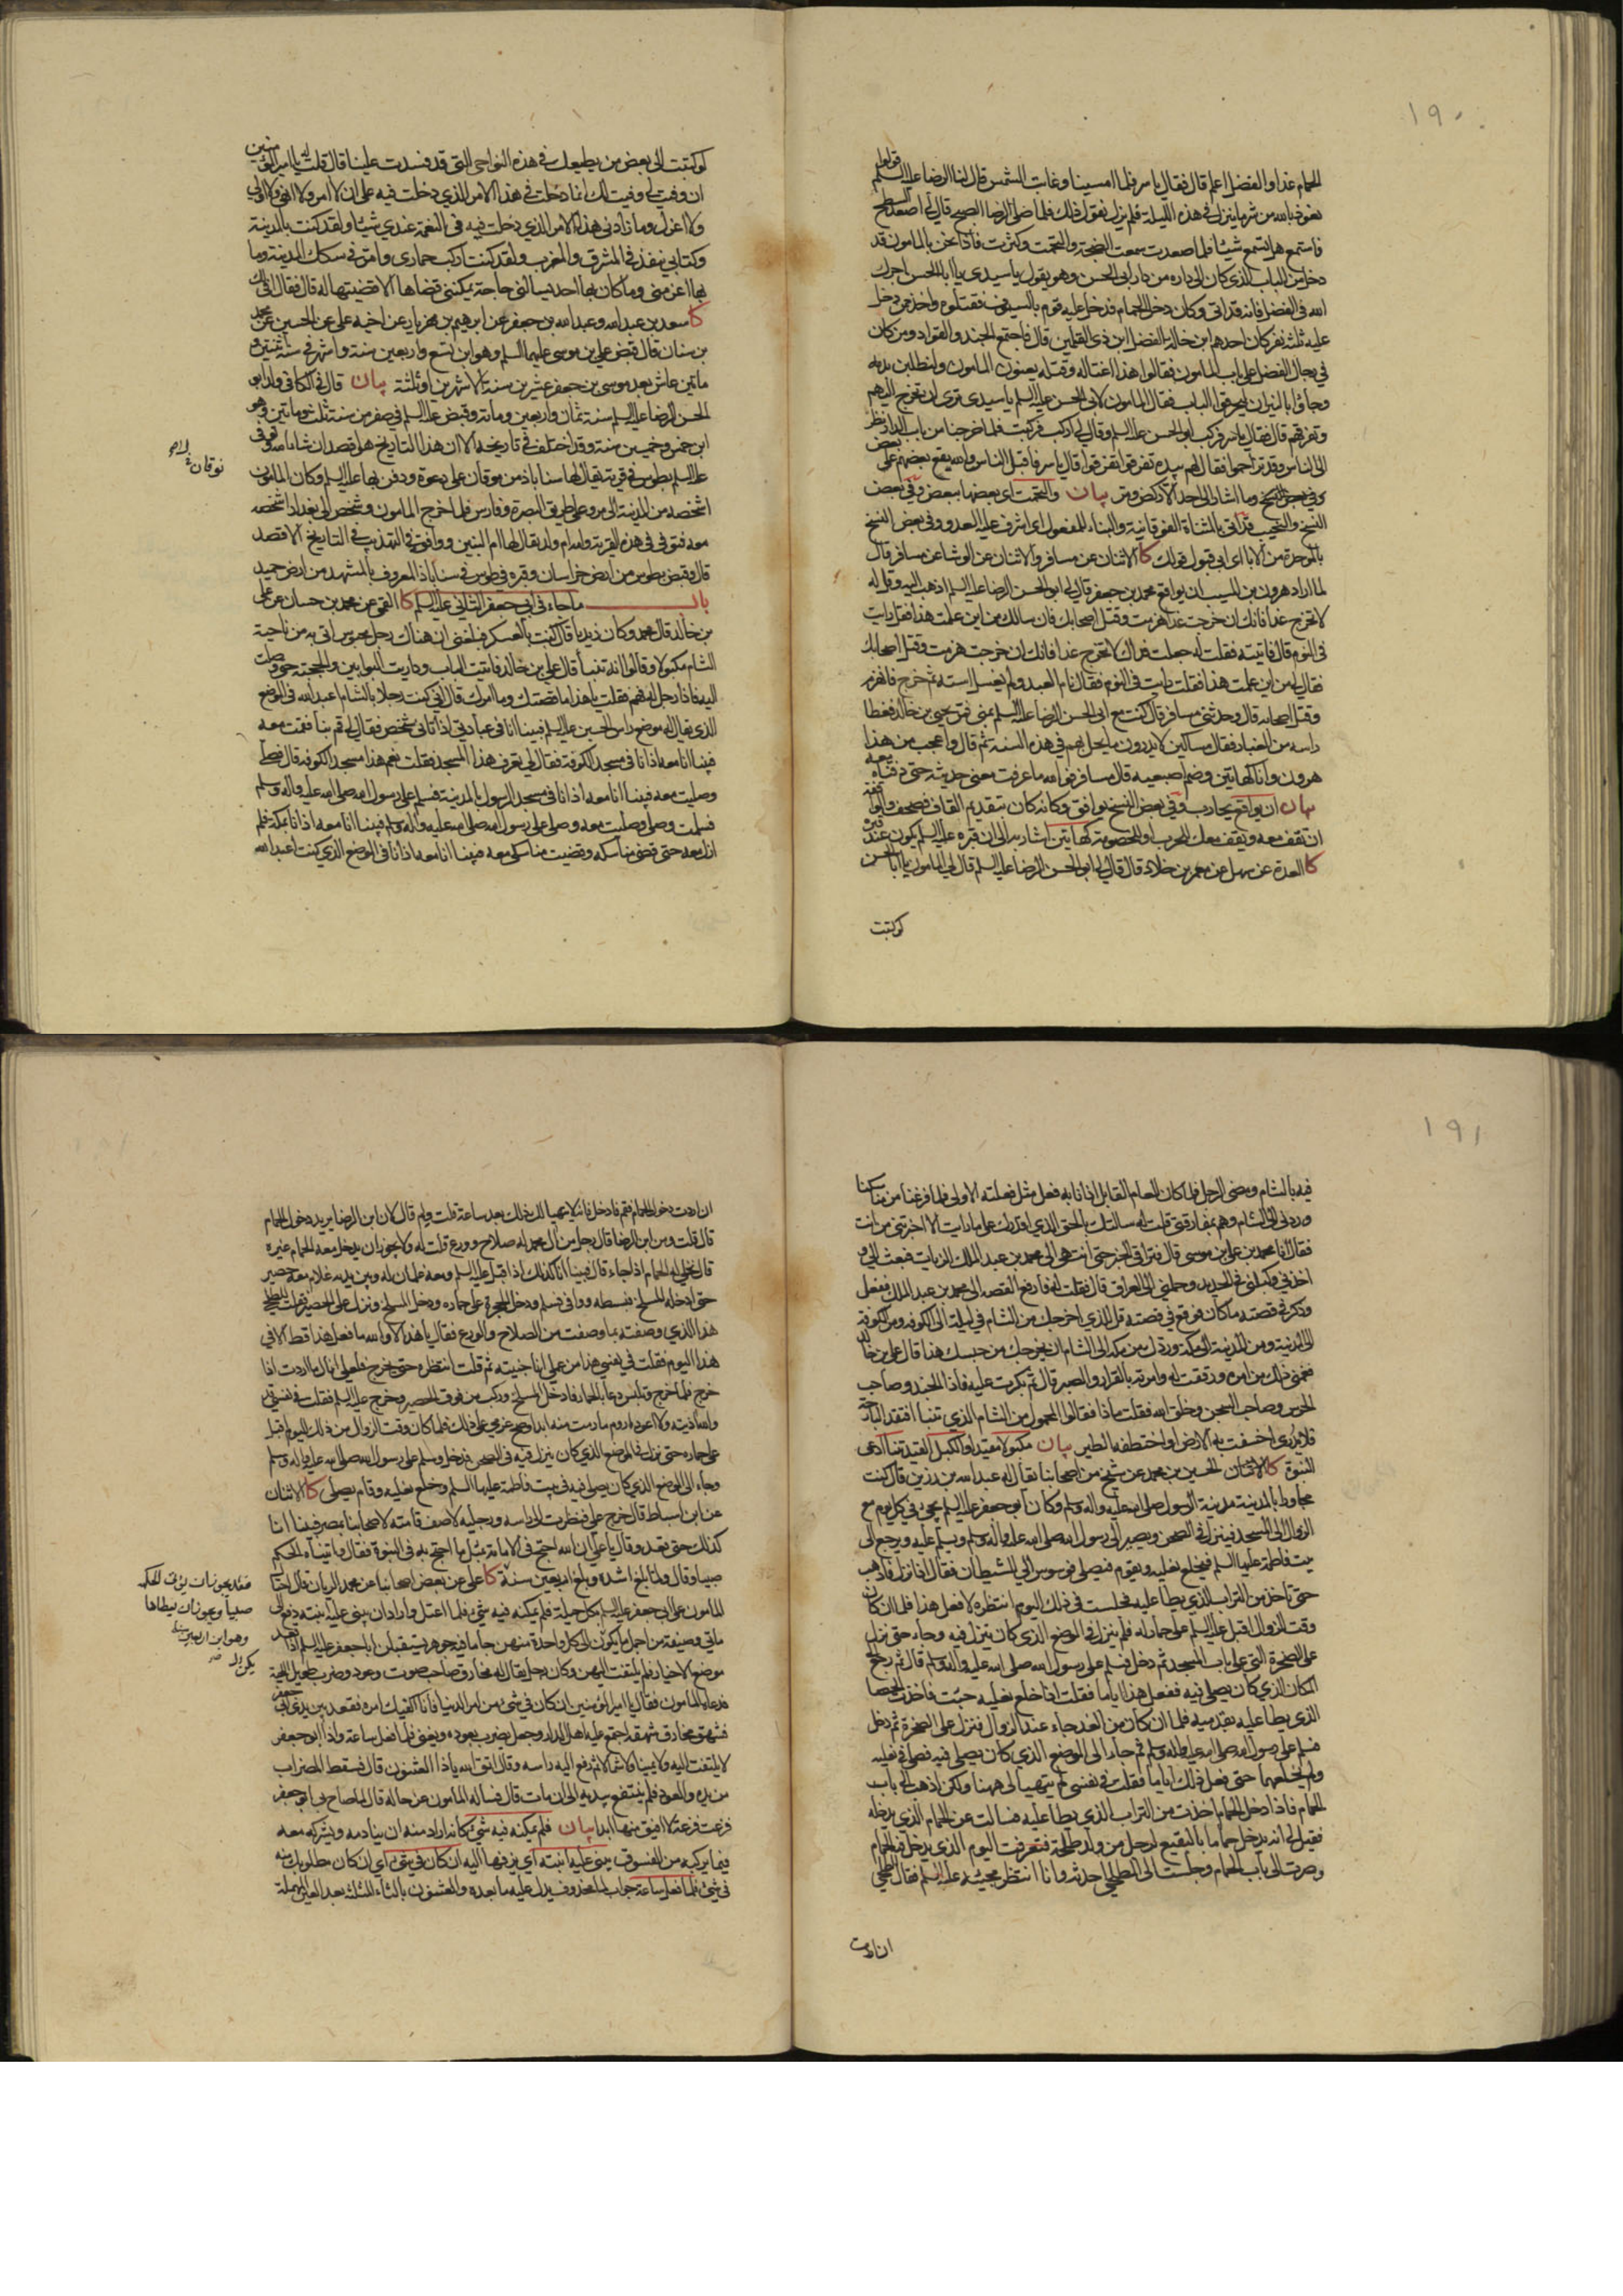 ١٩٠
الحمام غدا والفضل اعلم قال فقال ياسر فلما امسينا وغابت الشمس قال لنا الرضا عليه السلم قولوا
نعوذ بالله من شر ما ينزل في هذه الليلة فلم يزل نقول ذلك فلما صلى الرضا الصبح قال لي اصعد السطح
فاستمع هل تسمع شيئا فلما صعدت سمعت الضجة والتحمت وكثرت فاذا نحن بالمامون قد
دخل من الباب الذي كان الى داره من دار ابي الحسن وهو يقول يا سيدي يا ابا الحسن اجرك
الله في الفضل فانه قد اتى وكان دخل الحمام فدخل عليه قوم بالسيوف فقتلوه واخذ ممن دخل
عليه ثلثة نفر كان احدهم ابن خالة الفضل ابن ذي القلمين قال فاجتمع الجند والقواد ومن كان
في رجال الفضل على باب المامون فقالوا هذا اغتاله وقتله يعنون المامون ولنطلبن بدمه
وجاؤا بالنيران ليحرقوا الباب فقال المامون لابي الحسن عليه السلم يا سيدي ترى ان تخرج اليهم
وتفرقهم قال فقال ياسر فركب ابو الحسن عليه السلم وقال لي اركب فركبت فلما خرجنا من باب الدار نظر
الى الناس وقد تزاحموا فقال لهم بيده تفرقوا تفرقوا قال ياسر فاقبل الناس والله يقع بعضهم على بعض
وما اشار الى احد الا ركض ومر بيان والتحمت اى بعضها ببعض وفي بعض
النسخ والنحيب قد اتى بالمثناة الفوقانية والبناء للمفعول اي اشرف عليه العدو وفي بعض النسخ
بالموحدة من الاباء اى ابى قبول قولك كا الاثنان عن مسافر والاثنان عن الوشا عن مسافر قال
لما اراد هرون بن المسيب ان يواقع محمد بن جعفر قال لي ابو الحسن الرضا عليه السلم اذهب اليه وقل له
لا تخرج غدا فانك ان خرجت غدا هزمت وقتل اصحابك فان سالك من اين علمت هذا فقل رايت
في النوم قال فاتيته فقلت له جعلت فداك لا تخرج غدا فانك ان خرجت هزمت وقتل اصحابك
فقال لي من اين علمت هذا فقلت رايت في النوم فقال نام العبد ولم يغسل استه ثم خرج فانهزم
وقتل اصحابه قال وحدثني مسافر قال كنت مع ابي الحسن الرضا عليه السلم بمنى فمر يحيى بن خالد فغطا
راسه من الغبار فقال مساكين لا يدرون ما يحل بهم في هذه السنة ثم قال واعجب من هذا
هرون وانا كهاتين وضم اصبعيه قال مسافر فوالله ما عرفت معنى حديثه حتى دفناه معه
بيان ان يواقع يحارب وفي بعض النسخ يوافق وكانه كان بتقديم القاف فصحف والمواقفة
ان تقف معه ويقف معك للحرب او للخصومة كهاتين اشار به الى ان قبره عليه السلم يكون عند قبره
كا العدة عن سهل عن معمر بن خلاد قال قال لي ابو الحسن الرضا عليه السلم قال لي المامون يا ابا الحسن
لو كتبت
لو كتبت الى بعض من يطيعك في هذه النواحي التي قد فسدت علينا قال قلت له يا امير المؤمنين
ان وفيت لي وفيت لك انما دخلت في هذا الامر الذي دخلت فيه على ان لا امر ولا انهى ولا اولي
ولا اعزل وما زادني هذا الامر الذي دخلت فيه في النعمة عندي شيئا ولقد كنت بالمدينة
وكتابي ينفذ في المشرق والمغرب ولقد كنت اركب حماري وامر في سكك المدينة وما
بها اعز مني وما كان بها احد يسالني حاجة يمكنني قضاها الا قضيتها له قال فقال لي اف لك
كا سعد بن عبد الله وعبد الله بن جعفر عن ابرهيم بن مهزيار عن اخيه علي عن الحسين عن محمد
بن سنان قال قبض علي بن موسى عليهما السلم وهو ابن تسع واربعين سنة واشهر في سنة اثنتين و
ماتين عاش بعد موسى بن جعفر عشرين سنة الا شهرين او ثلثة بيان قال في الكافي ولد ابو
الحسن الرضا عليه السلم سنة ثمان واربعين ومائة وقبض عليه السلم في صفر من سنة ثلث ومائتين وهو
ابن خمس وخمسين سنة وقد اختلف في تاريخه الا ان هذا التاريخ هو اقصد ان شاء الله وتوفى
عليه السلم بطوس في قرية يقال لها سناباذ من موقان على دعوة ودفن بها عليه السلم وكان المامون
نوقان
اشخصه من المدينة الى مرو على طريق البصرة وفارس فلما خرج المامون وشخص الى بغداد اشخصه
معه فتوفي في هذه القرية وامه ام ولد يقال لها ام البنين ووافقه في التهذيب في التاريخ الاقصد
قال وقبض بطوس من ارض خراسان وقبره في طوس في سناباذ المعروف بالمشهد من ارض حميد
باب ما جاء في ابي جعفر الثاني عليه السلم كا القمي عن محمد بن حسان عن علي
بن خالد قال محمد وكان زيديا قال كنت بالعسكر فبلغني ان هناك رجل محبوس اتي به من ناحية
الشام مكبولا وقالوا انه تنبأ قال علي بن خالد فاتيت الباب وداريت البوابين والحجبة حتى وصلت
اليه فاذا رجل له فهم فقلت يا هذا ما قصتك وما امرك قال اني كنت رجلا بالشام اعبد الله في الموضع
الذي يقال له موضع راس الحسين عليه السلم فبينا انا في عبادتي اذ اتاني شخص فقال لي قم بنا فقمت معه
فبينا انا معه اذا انا في مسجد الكوفة فقال لي تعرف هذا المسجد فقلت نعم هذا مسجد الكوفة قال فصلى
وصليت معه فبينا انا معه اذ انا في مسجد الرسول بالمدينة فسلم على رسول الله صلى الله عليه واله وسلم
فسلمت وصلى وصليت معه وصلى على رسول الله صلى الله عليه واله وسلم فبينا انا معه اذا انا بمكة فلم
ازل معه حتى قضى مناسكه وقضيت مناسكي معه فبينا انا معه اذا انا في الموضع الذي كنت اعبد الله
١٩١
فيه بالشام ومضى الرجل فلما كان العام القابل اذا انا به فعل مثل فعلته الاولى فلما فرغنا من مناسكنا
وردني الى الشام وهم بمفارقتي قلت له سالتك بالحق الذي اقدرك على ما رايت الا اخبرتني من انت
فقال انا محمد بن علي ابن موسى قال فتراقى الخبر حتى انتهى الى محمد بن عبد الملك الزيات فبعث الي و
اخذني وكبلني في الحديد وحملني الى العراق قال فقلت له فارفع القصة الى محمد بن عبد الملك ففعل
وذكر في قصته ما كان فوقع في قصته قل للذي اخرجك من الشام في ليلة الى الكوفة ومن الكوفة
الى المدينة ومن المدينة الى مكة وردك من مكة الى الشام ان يخرجك من حبسك هذا قال علي بن خالد
فغمني ذلك من امره ورققت له وامرته بالقرار والصبر قال ثم بكرت عليه فاذا الجند وصاحب
الحرس وصاحب السجن وخلق الله فقلت ما ذا فقالوا المحمول من الشام الذي تنبا افتقد البارحة
فلا يدرى اخسفت به الارض او اختطفه الطير بيان مكبولا مقيدا والكبل القيد تنبا ادعى
النبوة كا الاثنان الحسين بن محمد عن شيخ من اصحابنا يقال له عبد الله بن رزين قال كنت
مجاورا بالمدينة مدينة الرسول صلى الله عليه واله وسلم وكان ابو جعفر عليه السلم يجيء في كل يوم مع
الزوال الى المسجد فينزل في الصحن ويصير الى رسول الله صلى الله عليه واله وسلم ويسلم عليه ويرجع الى
بيت فاطمة عليها السلم فيخلع نعليه ويقوم فيصلي فوسوس الي الشيطان فقال اذا نزل فاذهب
حتى تاخذ من التراب الذي يطا عليه فجلست في ذلك اليوم انتظره لافعل هذا فلما ان كان
وقت الزوال اقبل عليه السلم على حمار له فلم ينزل في الموضع الذي كان ينزل فيه وجاء حتى نزل
على الصخرة التي على باب المسجد ثم دخل فسلم على رسول الله صلى الله عليه واله وسلم قال ثم رجع الى
المكان الذي كان يصلي فيه ففعل هذا اياما فقلت اذا خلع نعليه جئت فاخذت الحصا
الذي يطا عليه بقدميه فلما ان كان من الغد جاء عند الزوال فنزل على الصخرة ثم دخل
فسلم على رسول الله صلى الله عليه واله وسلم ثم جاء الى الموضع الذي كان يصلي فيه فصلى في نعليه
ولم يخلعهما حتى فعل ذلك اياما فقلت في نفسي لم يتهيا لي ههنا ولكن اذهب الى باب
الحمام فاذا دخل الحمام اخذت من التراب الذي يطا عليه فسالت عن الحمام الذي يدخله
فقيل لي انه يدخل حماما بالبقيع لرجل من ولد طلحة فتعرفت اليوم الذي يدخل فيه الحمام
وصرت الى باب الحمام وجلست الى الطلحي احدثه وانا انتظر مجيئه عليه السلم فقال الطلحي
ان اردت
ان اردت دخول الحمام فقم فادخل فانه لا يتهيا لك ذلك بعد ساعة قلت ولم قال لان ابن الرضا يريد دخول الحمام
قال قلت ومن ابن الرضا قال رجل من آل محمد له صلاح وورع قلت له ولا يجوز ان يدخل معه الحمام غيره
قال نخلي له الحمام اذا جاء قال فبينا انا كذلك اذ اقبل عليه السلم ومعه غلمان له وبين يديه غلام معه حصير
حتى ادخله المسلخ فبسطه ووافى فسلم ودخل الحجرة على حماره ودخل المسلخ ونزل على الحصير فقلت للطلحي
هذا الذي وصفته بما وصفت من الصلاح والورع فقال يا هذا لا والله ما فعل هذا قط الا في
هذا اليوم فقلت في نفسي هذا من عملي انا جنيته ثم قلت انتظره حتى يخرج فلعلي انال ما اردت اذا
خرج فلما خرج وتلبس دعا بالحمار فادخل المسلخ وركب من فوق الحصير وخرج عليه السلم فقلت في نفسي قد
والله اذيته ولا اعود اروم ما رمت منه ابدا وصح عزمي على ذلك فلما كان وقت الزوال من ذلك اليوم اقبل
على حماره حتى نزل في الموضع الذي كان ينزل فيه في الصحن فدخل وسلم على رسول الله صلى الله عليه واله وسلم
وجاء الى الموضع الذي كان يصلي فيه في بيت فاطمة عليها السلم وخلع نعليه وقام يصلي كا الاثنان
عن ابن اسباط قال خرج علي فنظرت الى راسه ورجليه لاصف قامته لاصحابنا بمصر فبينا انا
كذلك حتى قعد وقال يا علي ان الله احتج في الامامة بمثل ما احتج به في النبوة فقال واتيناه الحكم
صبيا وقال ولما بلغ اشده وبلغ اربعين سنة كا علي عن بعض اصحابنا عن محمد الريان قال احتال
فقد يجوز ان يؤتى الحكمة
صبيا ويجوز ان يعطاها
وهو ابن اربعين سنة
المامون على ابي جعفر عليه السلم بكل حيلة فلم يمكنه فيه شيء فلما اعتل واراد ان يبني عليه ابنته دفع الى
ماتي وصيفة من اجمل ما يكون الى كل واحدة منهن جاما فيه جوهر يستقبلن ابا جعفر عليه السلم اذا قعد
موضع الاخيار فلم يلتفت اليهن وكان رجل يقال له مخارق صاحب صوت وعود وضرب طويل اللحية
فدعاه المامون فقال يا امير المؤمنين ان كان في شيء من امر الدنيا فانا اكفيك امره فقعد بين يدي ابي جعفر
فشهق مخارق شهقة اجتمع عليه اهل الدار وجعل يضرب بعوده ويغني فلما فعل ساعة واذا ابو جعفر
لا يلتفت اليه ولا يمينا ولا شمالا ثم رفع اليه راسه وقال اتق الله يا ذا العثنون قال فسقط المضراب
من يده والعود فلم ينتفع بيديه الى ان مات قال فساله المامون عن حاله قال لما صاح بي ابو جعفر
فزعت فزعة لا افيق منها ابدا بيان فلم يمكنه فيه شيء كانه اراد منه ان ينادمه ويشركه معه
فيما يركبه من الفسوق يبني عليه ابنته اي يزفها اليه ان كان في شيء اي ان كان مطلوبك منه
في شيء فلما فعل ساعة جواب لما محذوف يدل عليه ما بعده والعثنون بالثاء المثلثة بعد العين المهملة